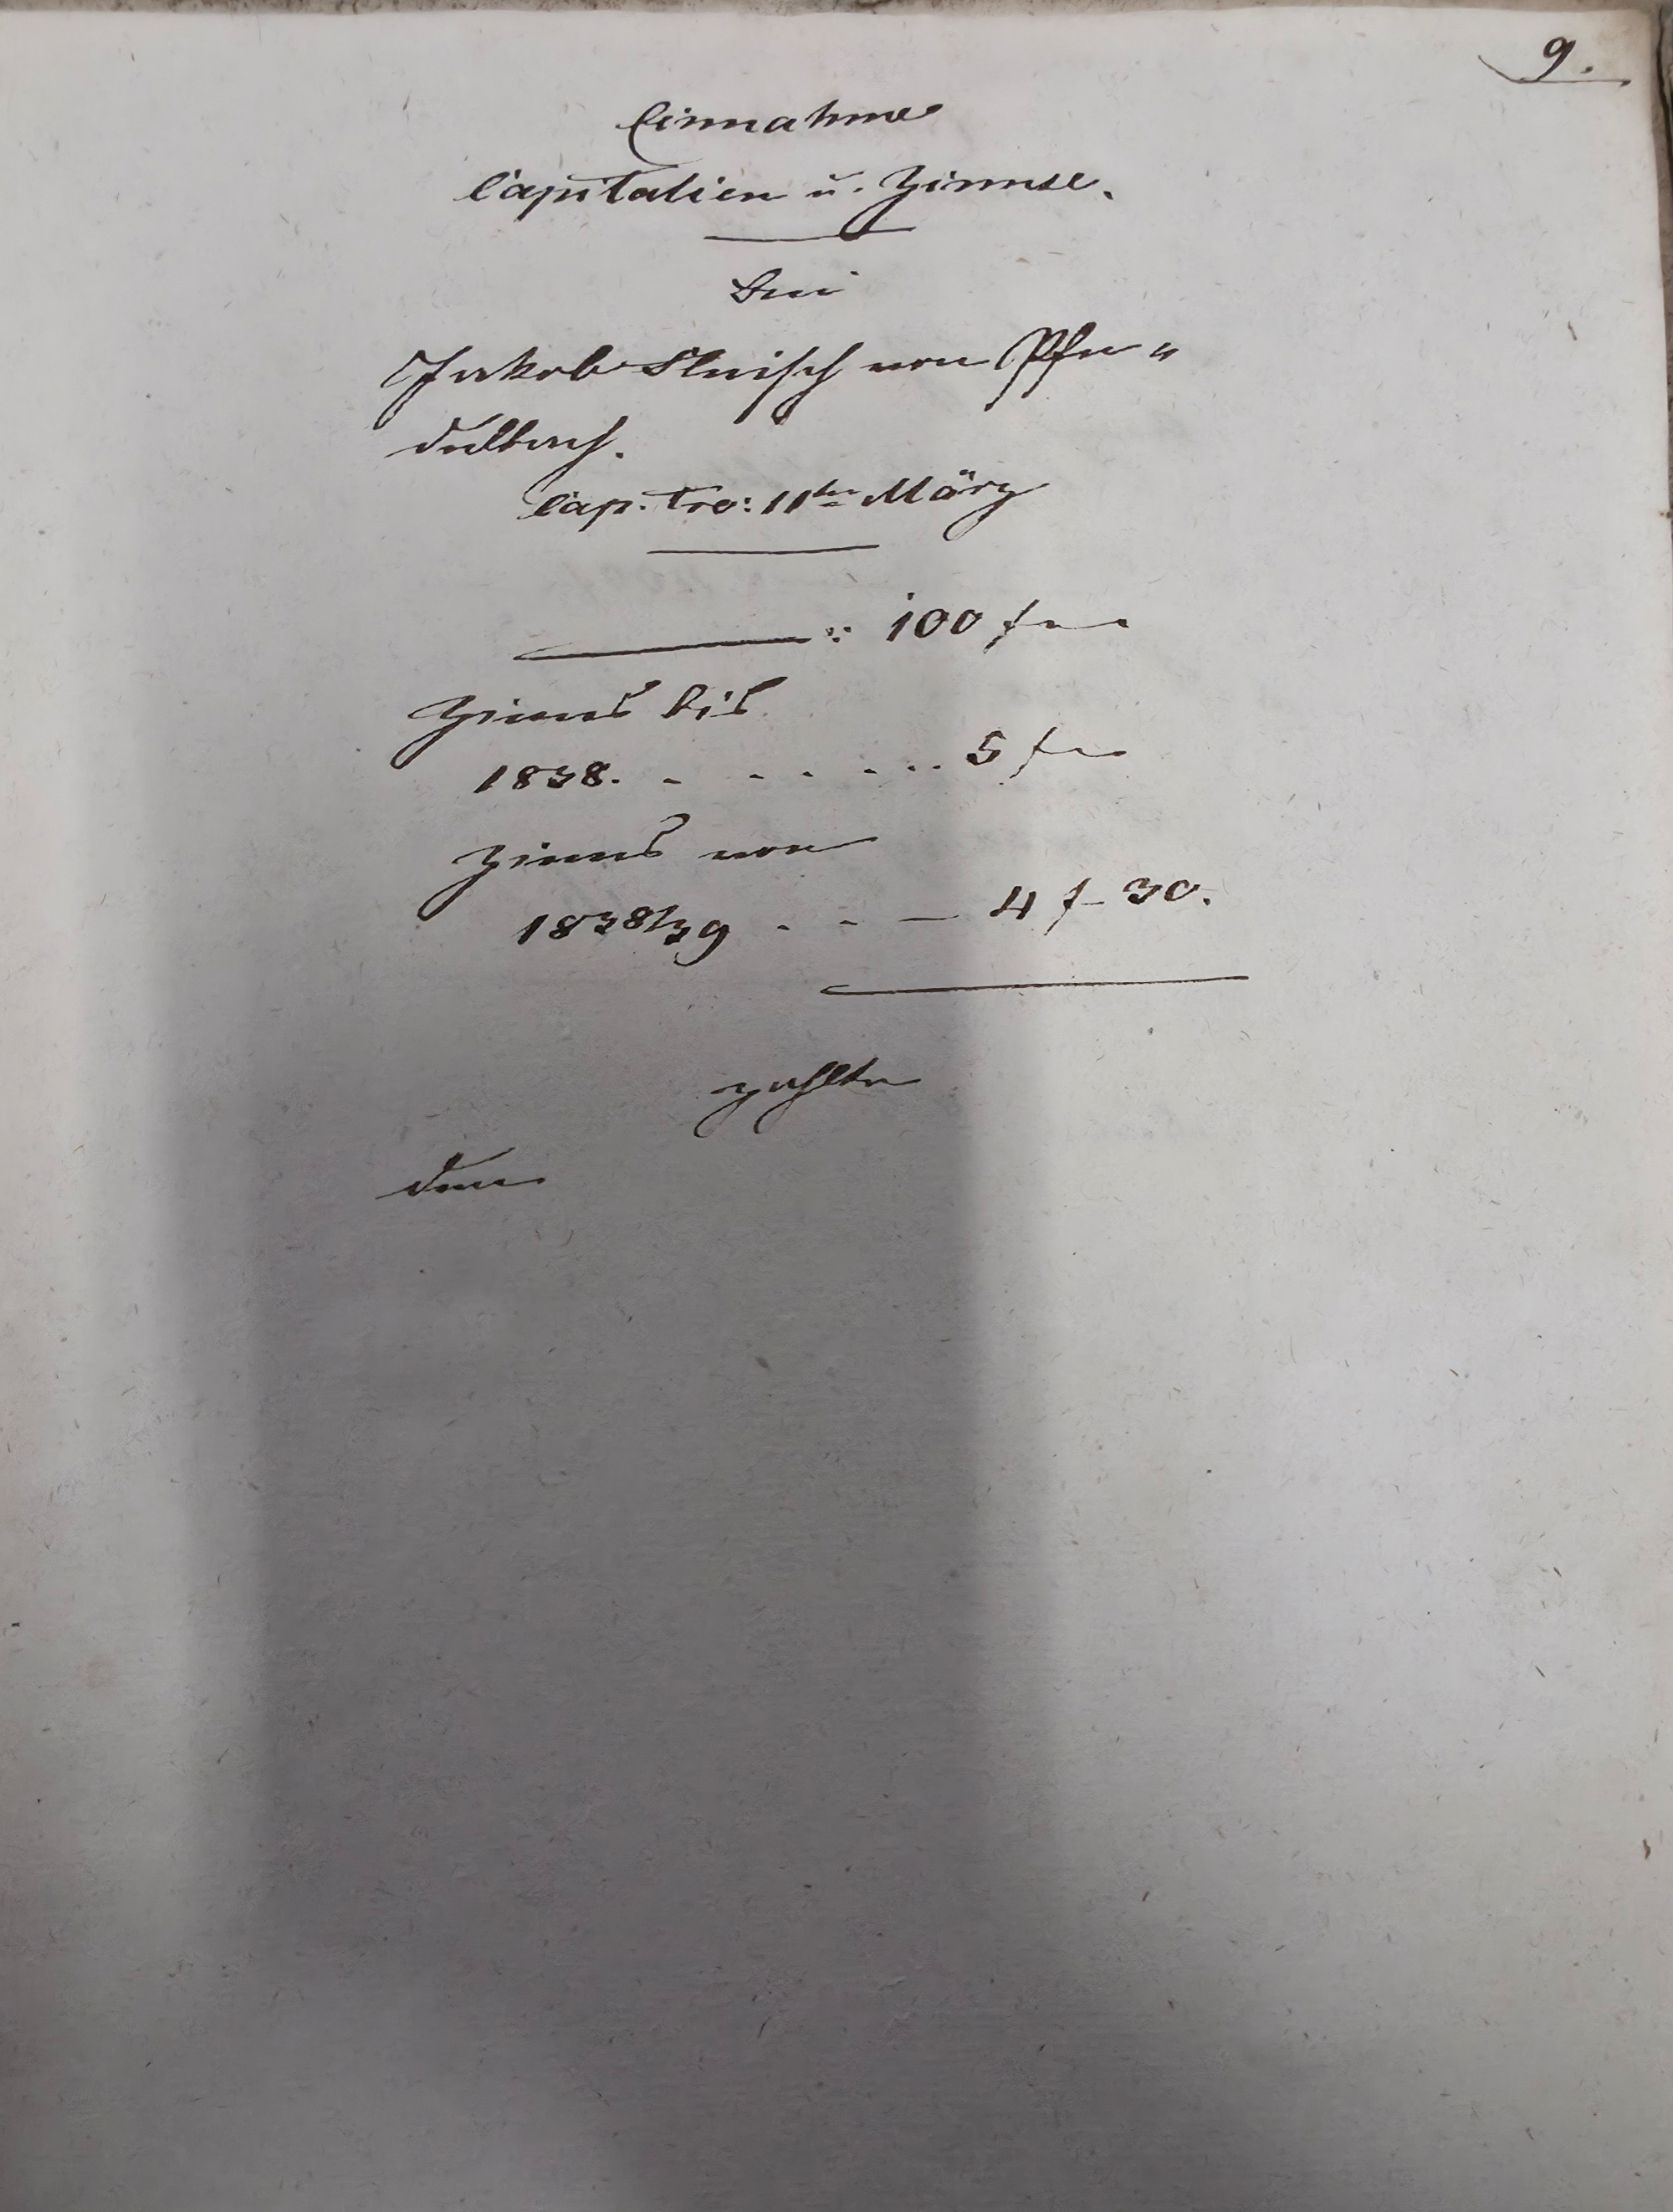 9.
Einnahme
Capitalien u. Zinnse.
Bei
Jakob Fleisch von Pfe„
delbach.
Cap. Tro: 11ten März
: 100 f
Zinns bis
1838. . . . . . . . 5 f
Zinns von
1838/39 . . — 4 f 30.
zahlte
den